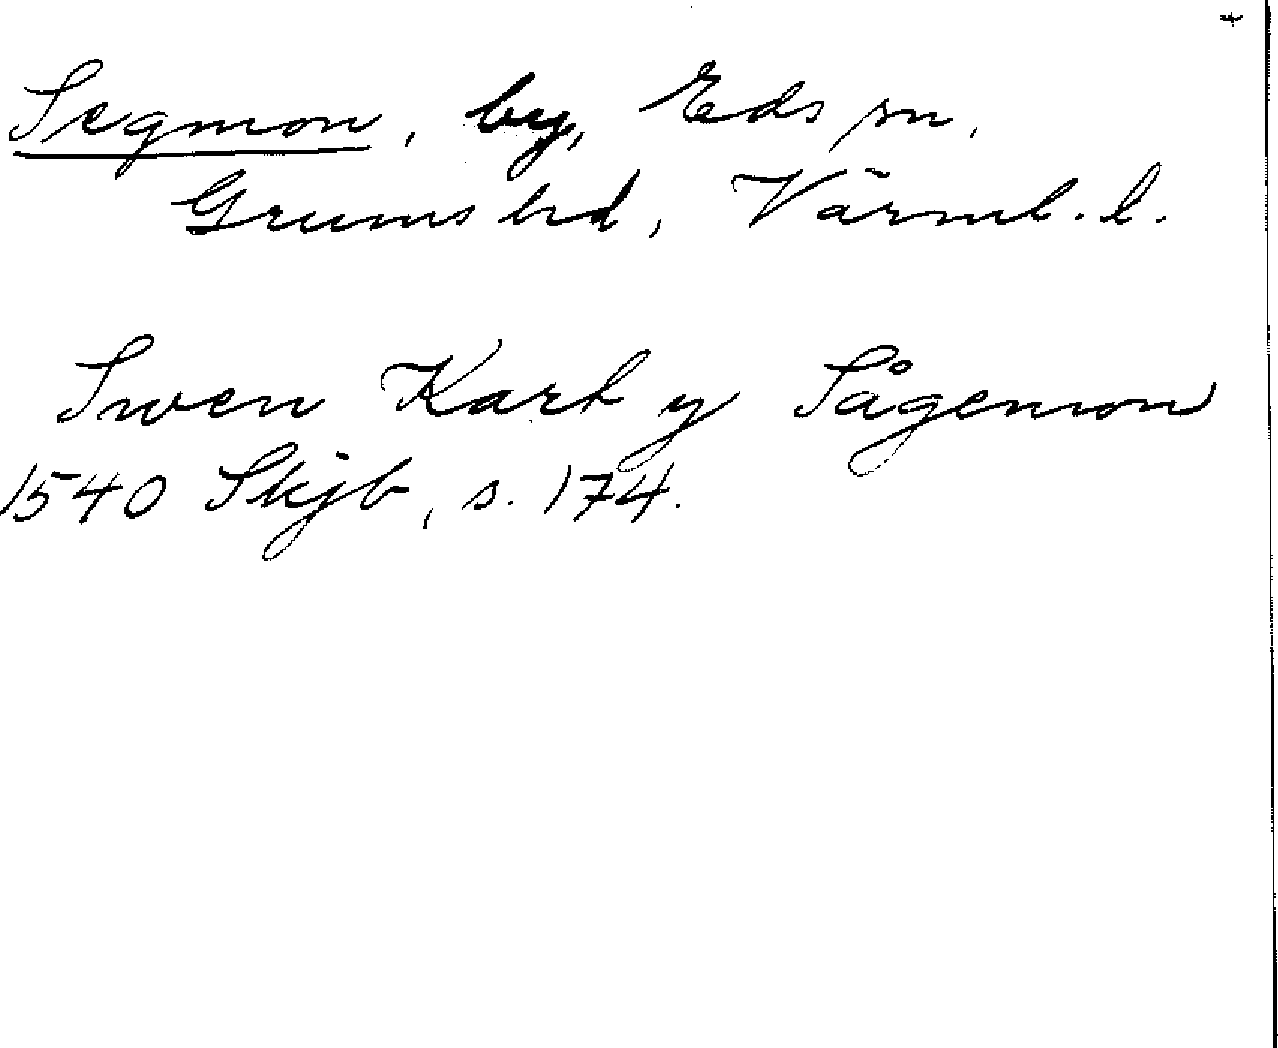 Segmon, by, Eds sn,
Grums hd, Värml. l.
Swen Kart y Sågemon
1540 Skjb, s. 174.